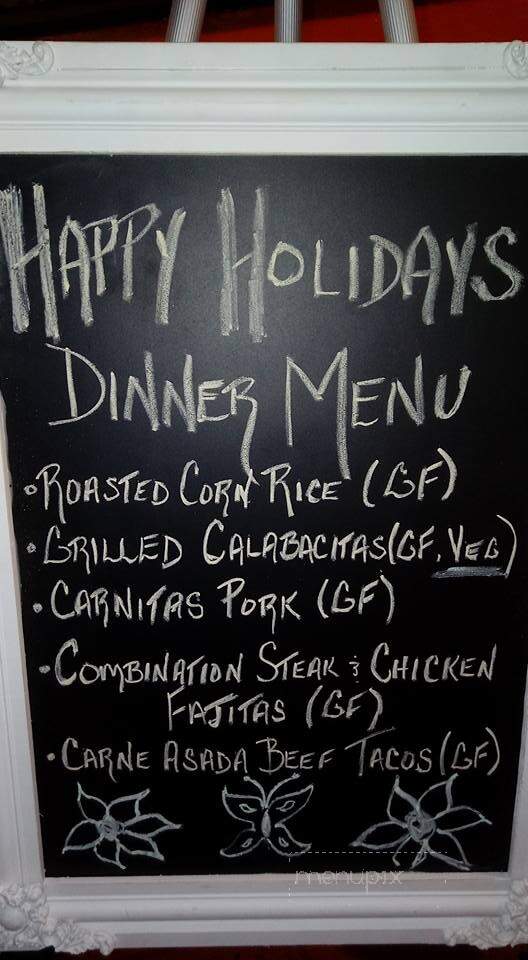 HAPPY HOLIDAYS
DINNER MENU
• ROASTED CORN RICE (GF)
• GRILLED CALABACITAS (GF, VEG)
• CARNITAS PORK (GF)
• COMBINATION STEAK & CHICKEN
FAJITAS (GF)
• CARNE ASADA BEEF TACOS (GF)
menupix